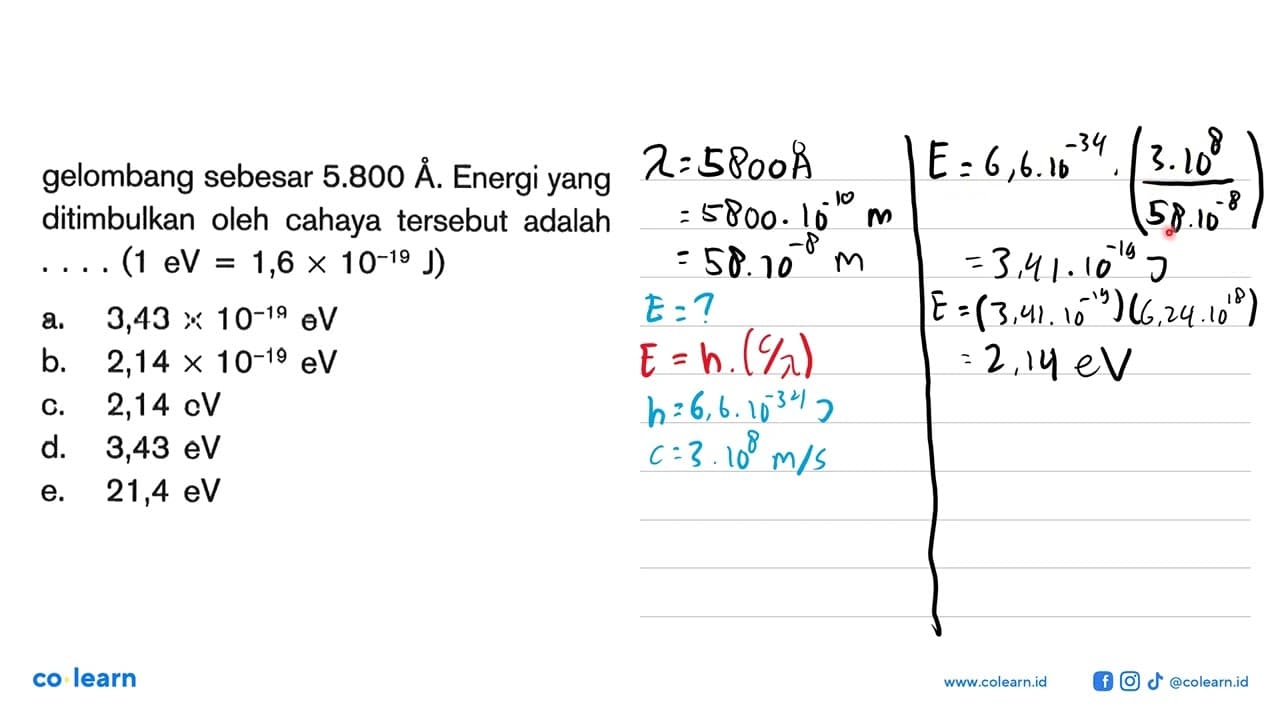 gelombang sebesar 5.800 Å. Energi yang
ditimbulkan oleh cahaya tersebut adalah
. . . . (1 eV = 1,6 × 10⁻¹⁹ J)
a. 3,43 × 10⁻¹⁹ eV
b. 2,14 × 10⁻¹⁹ eV
c. 2,14 eV
d. 3,43 eV
e. 21,4 eV
λ = 5800 Å
= 5800 . 10⁻¹⁰ m
= 58 . 10⁻⁸ m
E = ?
E = h . (c/λ)
h = 6,6 . 10⁻³⁴ J
c = 3 . 10⁸ m/s
E = 6,6 . 10⁻³⁴ . (3 . 10⁸ / 58 . 10⁻⁸)
= 3,41 . 10⁻¹⁹ J
E = (3,41 . 10⁻¹⁹)(6,24 . 10¹⁸)
= 2,14 eV
co learn
www.colearn.id
@colearn.id